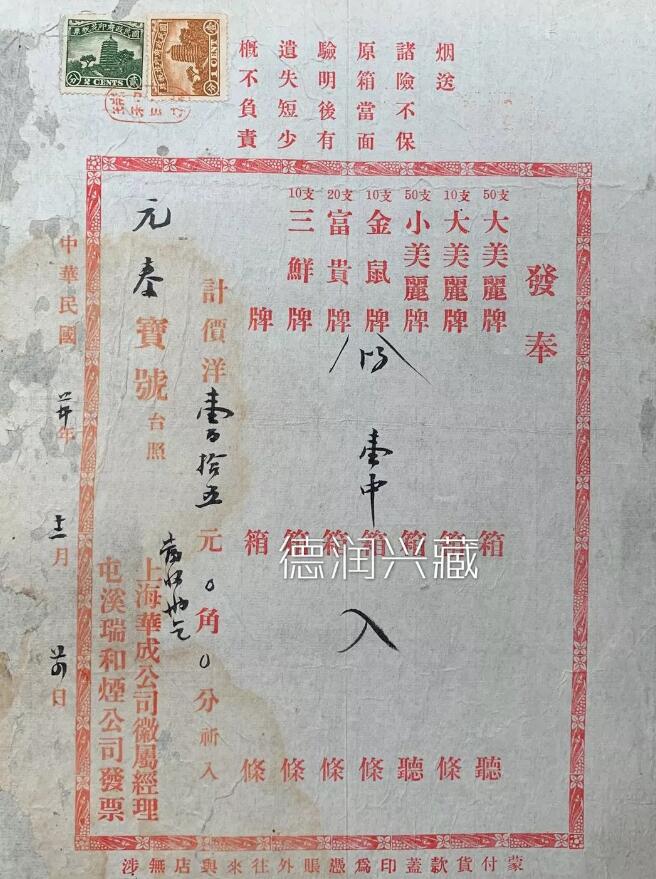 烟送
諸險不保
原箱當面
驗明後有
遺失短少
概不負責
國民政府印花税票
壹分
1 CENT
國民政府印花税票
貳分
2 CENTS
發奉
50支大美麗牌 箱 聽
10支大美麗牌 箱 條
50支小美麗牌 箱 聽
10支金鼠牌 壹中箱 條
20支富貴牌 箱 條
10支三鮮牌 箱 條
牌 箱 條
計價洋壹百拾五元0角0分祈入
元泰寶號台照
上海華成公司徽屬經理
屯溪瑞和煙公司發票
中華民國廿年十二月廿四日
蒙付貨款蓋印爲憑賬外往來與店無涉
德润兴藏